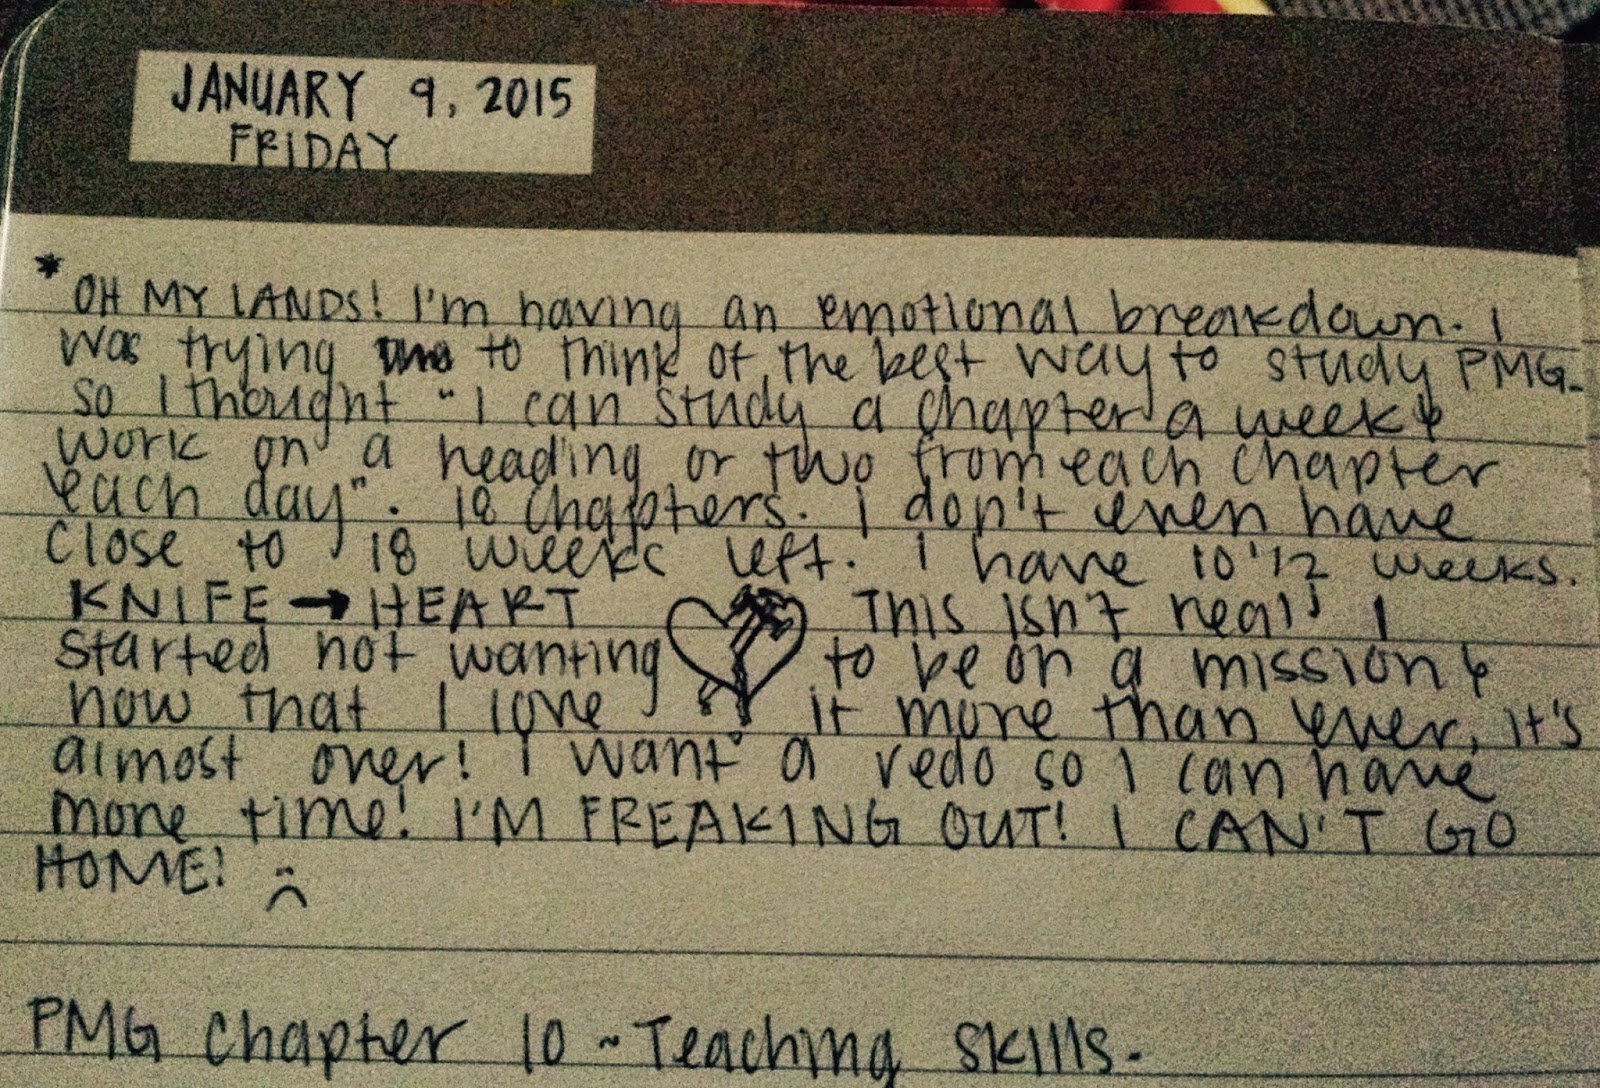 JANUARY 9, 2015
FRIDAY
* OH MY LANDS! I'm having an emotional breakdown. I
was trying to think of the best way to study PMG.
so I thought "I can study a chapter a week &
work on a heading or two from each chapter
each day". 18 chapters. I don't even have
close to 18 weeks left. I have 10-12 weeks.
KNIFE → HEART This isn't real! I
started not wanting to be on a mission &
now that I love it more than ever, it's
almost over! I want a redo so I can have
more time! I'M FREAKING OUT! I CAN'T GO
HOME! :(
PMG Chapter 10 ~ Teaching Skills.